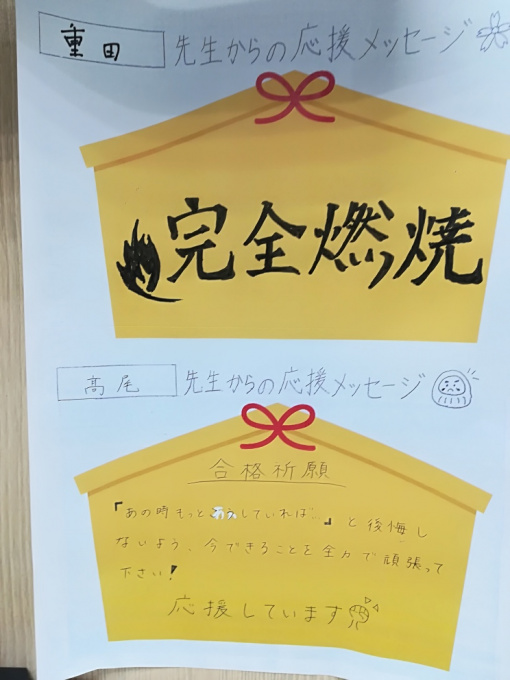 重田 先生からの応援メッセージ
完全燃焼
高尾 先生からの応援メッセージ
合格祈願
『あの時もっとこうしていれば…』と後悔し
ないよう、今できることを全力で頑張って
下さい!
応援しています